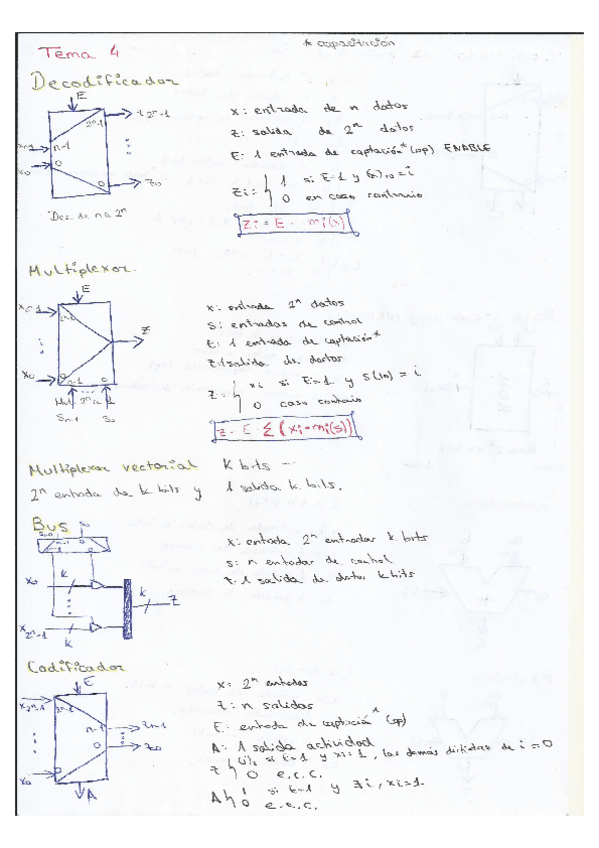 * capacitación
Tema 4
Decodificador
E
2^n-1
n-1
0
x0
0
z0
Dec. de n a 2^n
x: entrada de n datos
z: salida de 2^n datos
E: 1 entrada de captación* (op) ENABLE
zi = { 1 si E=1 y (x)10 = i
0 en caso contrario
zi = E · mi(x)
Multiplexor
E
x2^n-1
z
x0
0
n-1
0
Sn-1
S0
x: entrada 2^n datos
s: entradas de control
E: 1 entrada de captación*
z: 1 salida de datos
z = { xi si E=1 y S(10) = i
0 caso contrario
z = E · Σ (xi = mi(s))
Multiplexor vectorial K bits
2^n entrada de k bits y 1 salida k bits.
Bus
x0
k
k
z
x2^n-1
k
x: entrada 2^n entradas k bits
s: n entradas de control
z: 1 salida de datos k bits
Codificador
E
x2^n-1
2^n-1
n-1
zn-1
0
z0
x0
0
A
x: 2^n entradas
z: n salidas
E: entrada de captación* (op)
A: 1 salida actividad
z { (i)2 si E=1 y xi=1, las demás distintas de i = 0
0 e.c.c.
A { 1 si E=1 y ∃i, xi=1.
0 e.c.c.